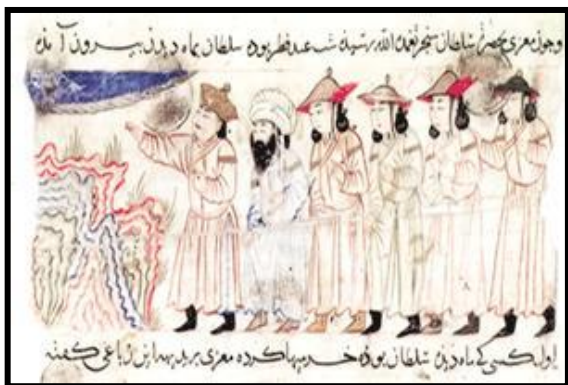 وچون معزی بحضرت سلطان سنجر تغمده الله برسیده شب عید فطر بوده سلطان بماه دیدن بیرون آمده
اول کسی که ماه دیده سلطان بوده خرمیها کرده معزی بر بدیهه این رباعی گفته